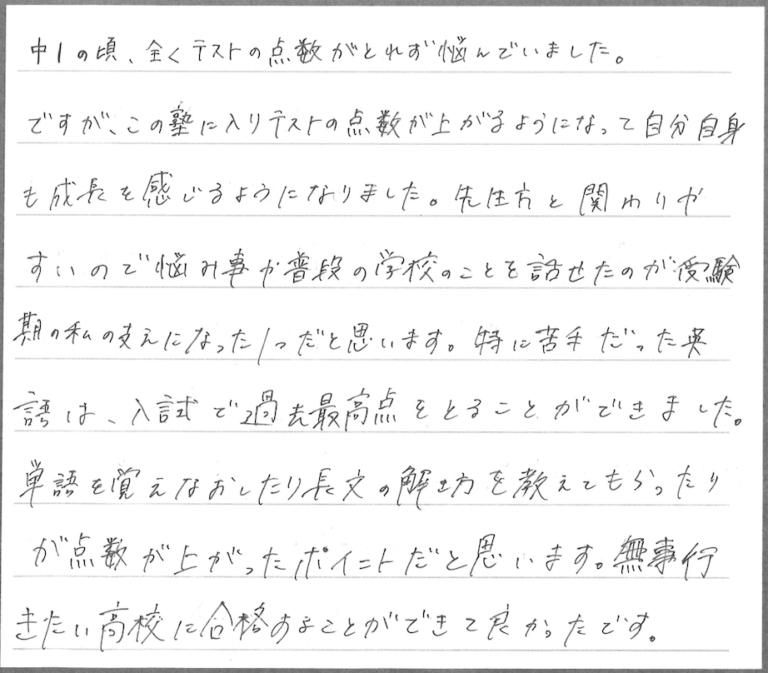 中1の頃、全くテストの点数がとれず悩んでいました。
ですが、この塾に入りテストの点数が上がるようになって自分自身
も成長を感じるようになりました。先生方と関わりや
すいので悩み事や普段の学校のことを話せたのが受験
期の私の支えになった1つだと思います。特に苦手だった英
語は、入試で過去最高点をとることができました。
単語を覚えなおしたり長文の解き方を教えてもらったり
が点数が上がったポイントだと思います。無事行
きたい高校に合格することができて良かったです。